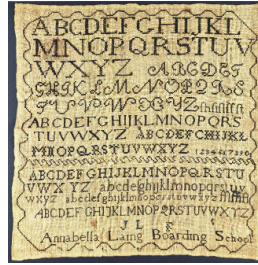 ABCDEFGHIJKL
MNOPQRSTUV
WXYZ ABCDEF
GHIKLMNOPQRS
TUVWXYZ
ABCDEFGHIJKLMNOPQRS
TUVWXYZ ABCDEFGHIJKL
MNOPQRSTUVWXYZ
ABCDEFGHIJKLMNOPQRSTU
VWXYZ abcdefghijklmnopqrstuv
wxyz abcdefghijklmnopqrstuvwxyz
ABCDEFGHIJKLMNOPQRSTUVWXYZ
J L
Annabella Laing Boarding School